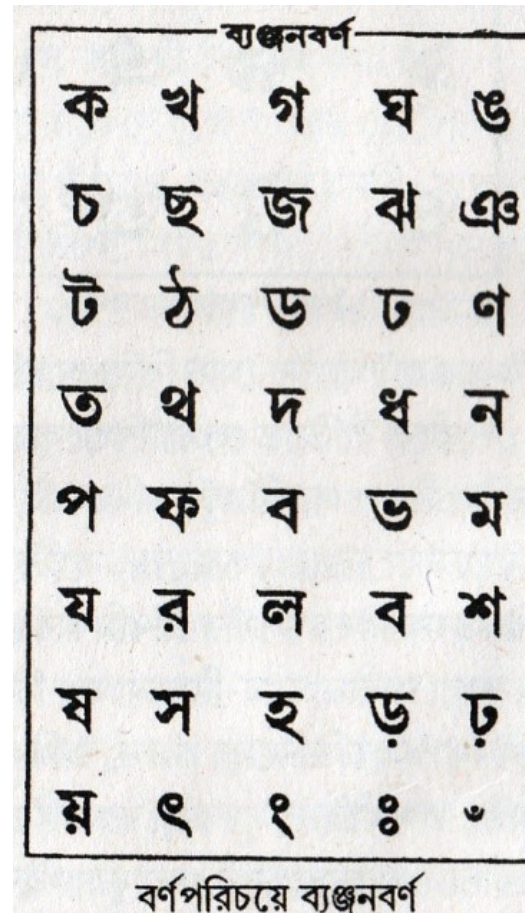 ব্যঞ্জনবর্ণ
ক খ গ ঘ ঙ
চ ছ জ ঝ ঞ
ট ঠ ড ঢ ণ
ত থ দ ধ ন
প ফ ব ভ ম
য র ল ব শ
ষ স হ ড় ঢ়
য় ৎ ং ঃ ঁ
বর্ণপরিচয়ে ব্যঞ্জনবর্ণ